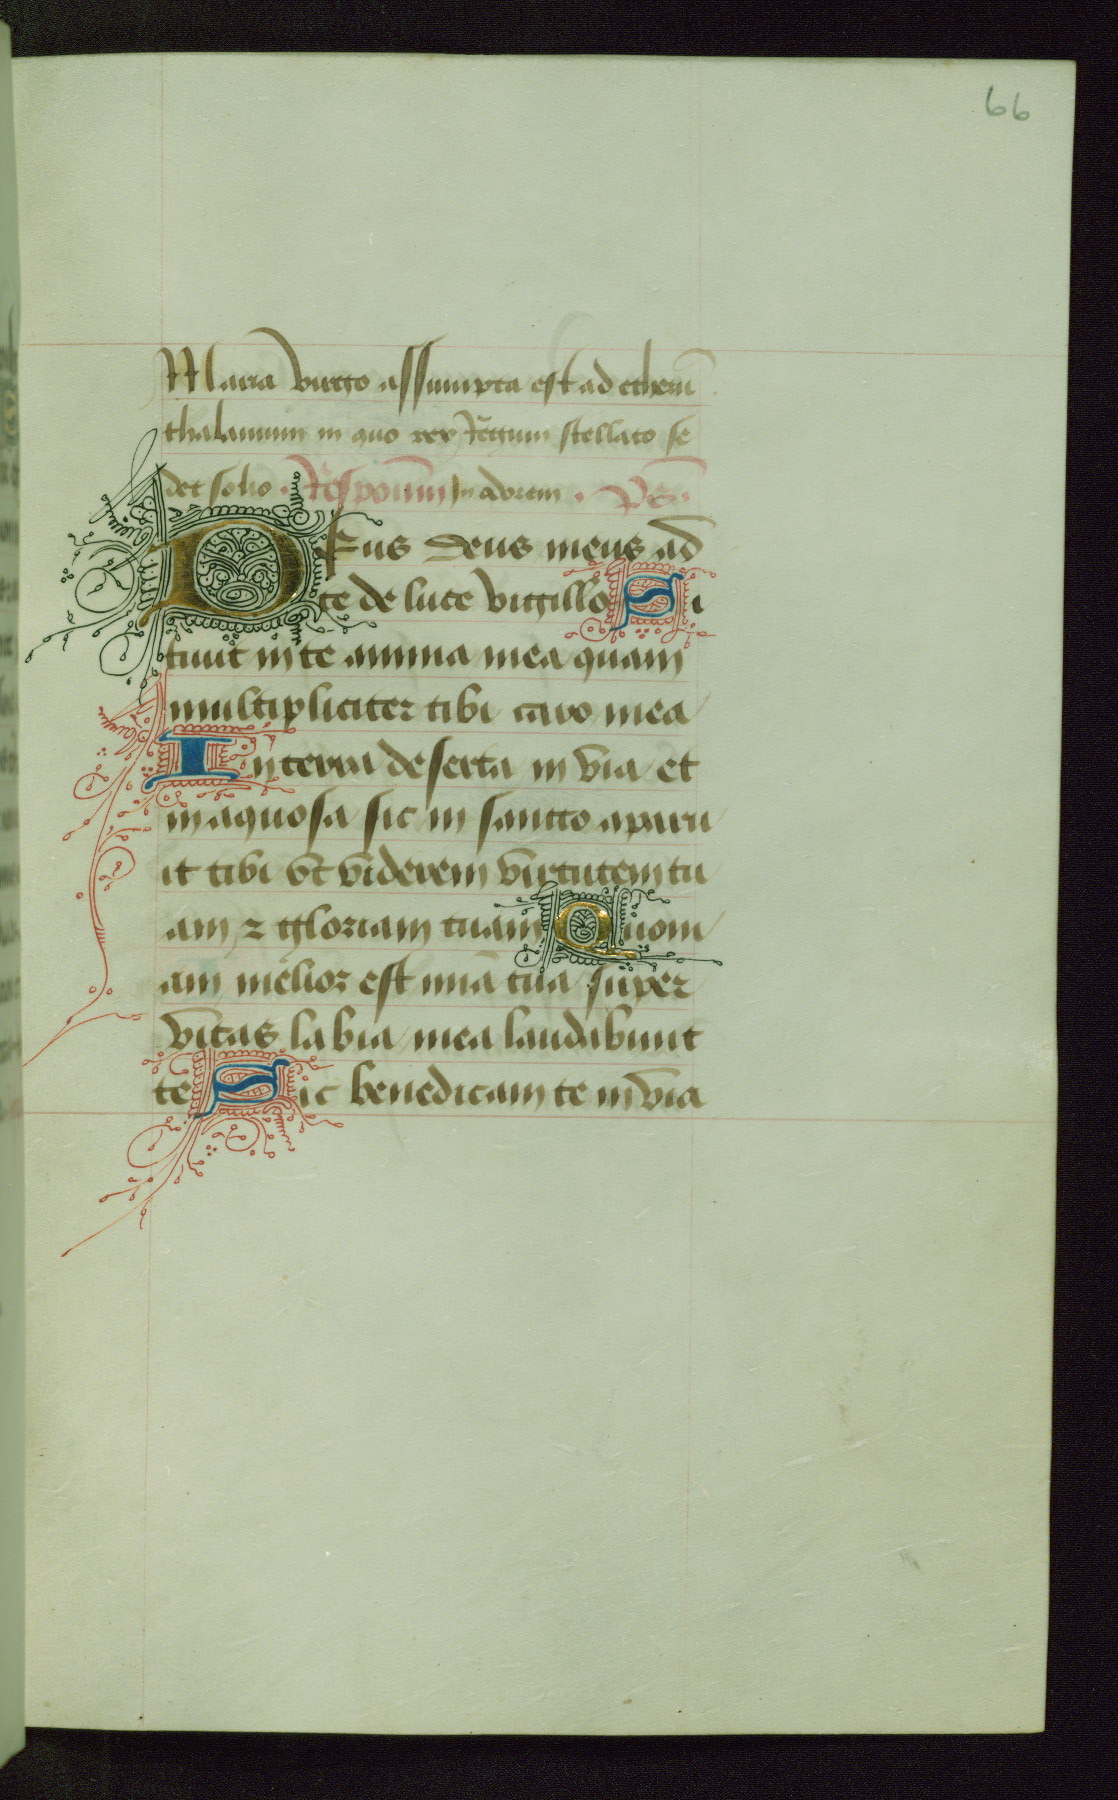 66
Maria virgo assumpta est ad ethereū
thalamum in quo rex Regum stellato se
det solio . Responsū In odorem . Ps .
Deus deus meus ad
te de luce vigillo Si
tiuit in te anima mea quam
multipliciter tibi caro mea
In terra deserta in via et
in aquosa sic in sancto aparu
it tibi vt viderem virtutem tu
am ⁊ gloriam tuam Quoni
am melior est mīa tua super
vitas labia mea laudabunt
te Sic benedicam te in vita